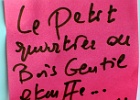 Le Petit
quartier du
Bois Gentil
étouffe...